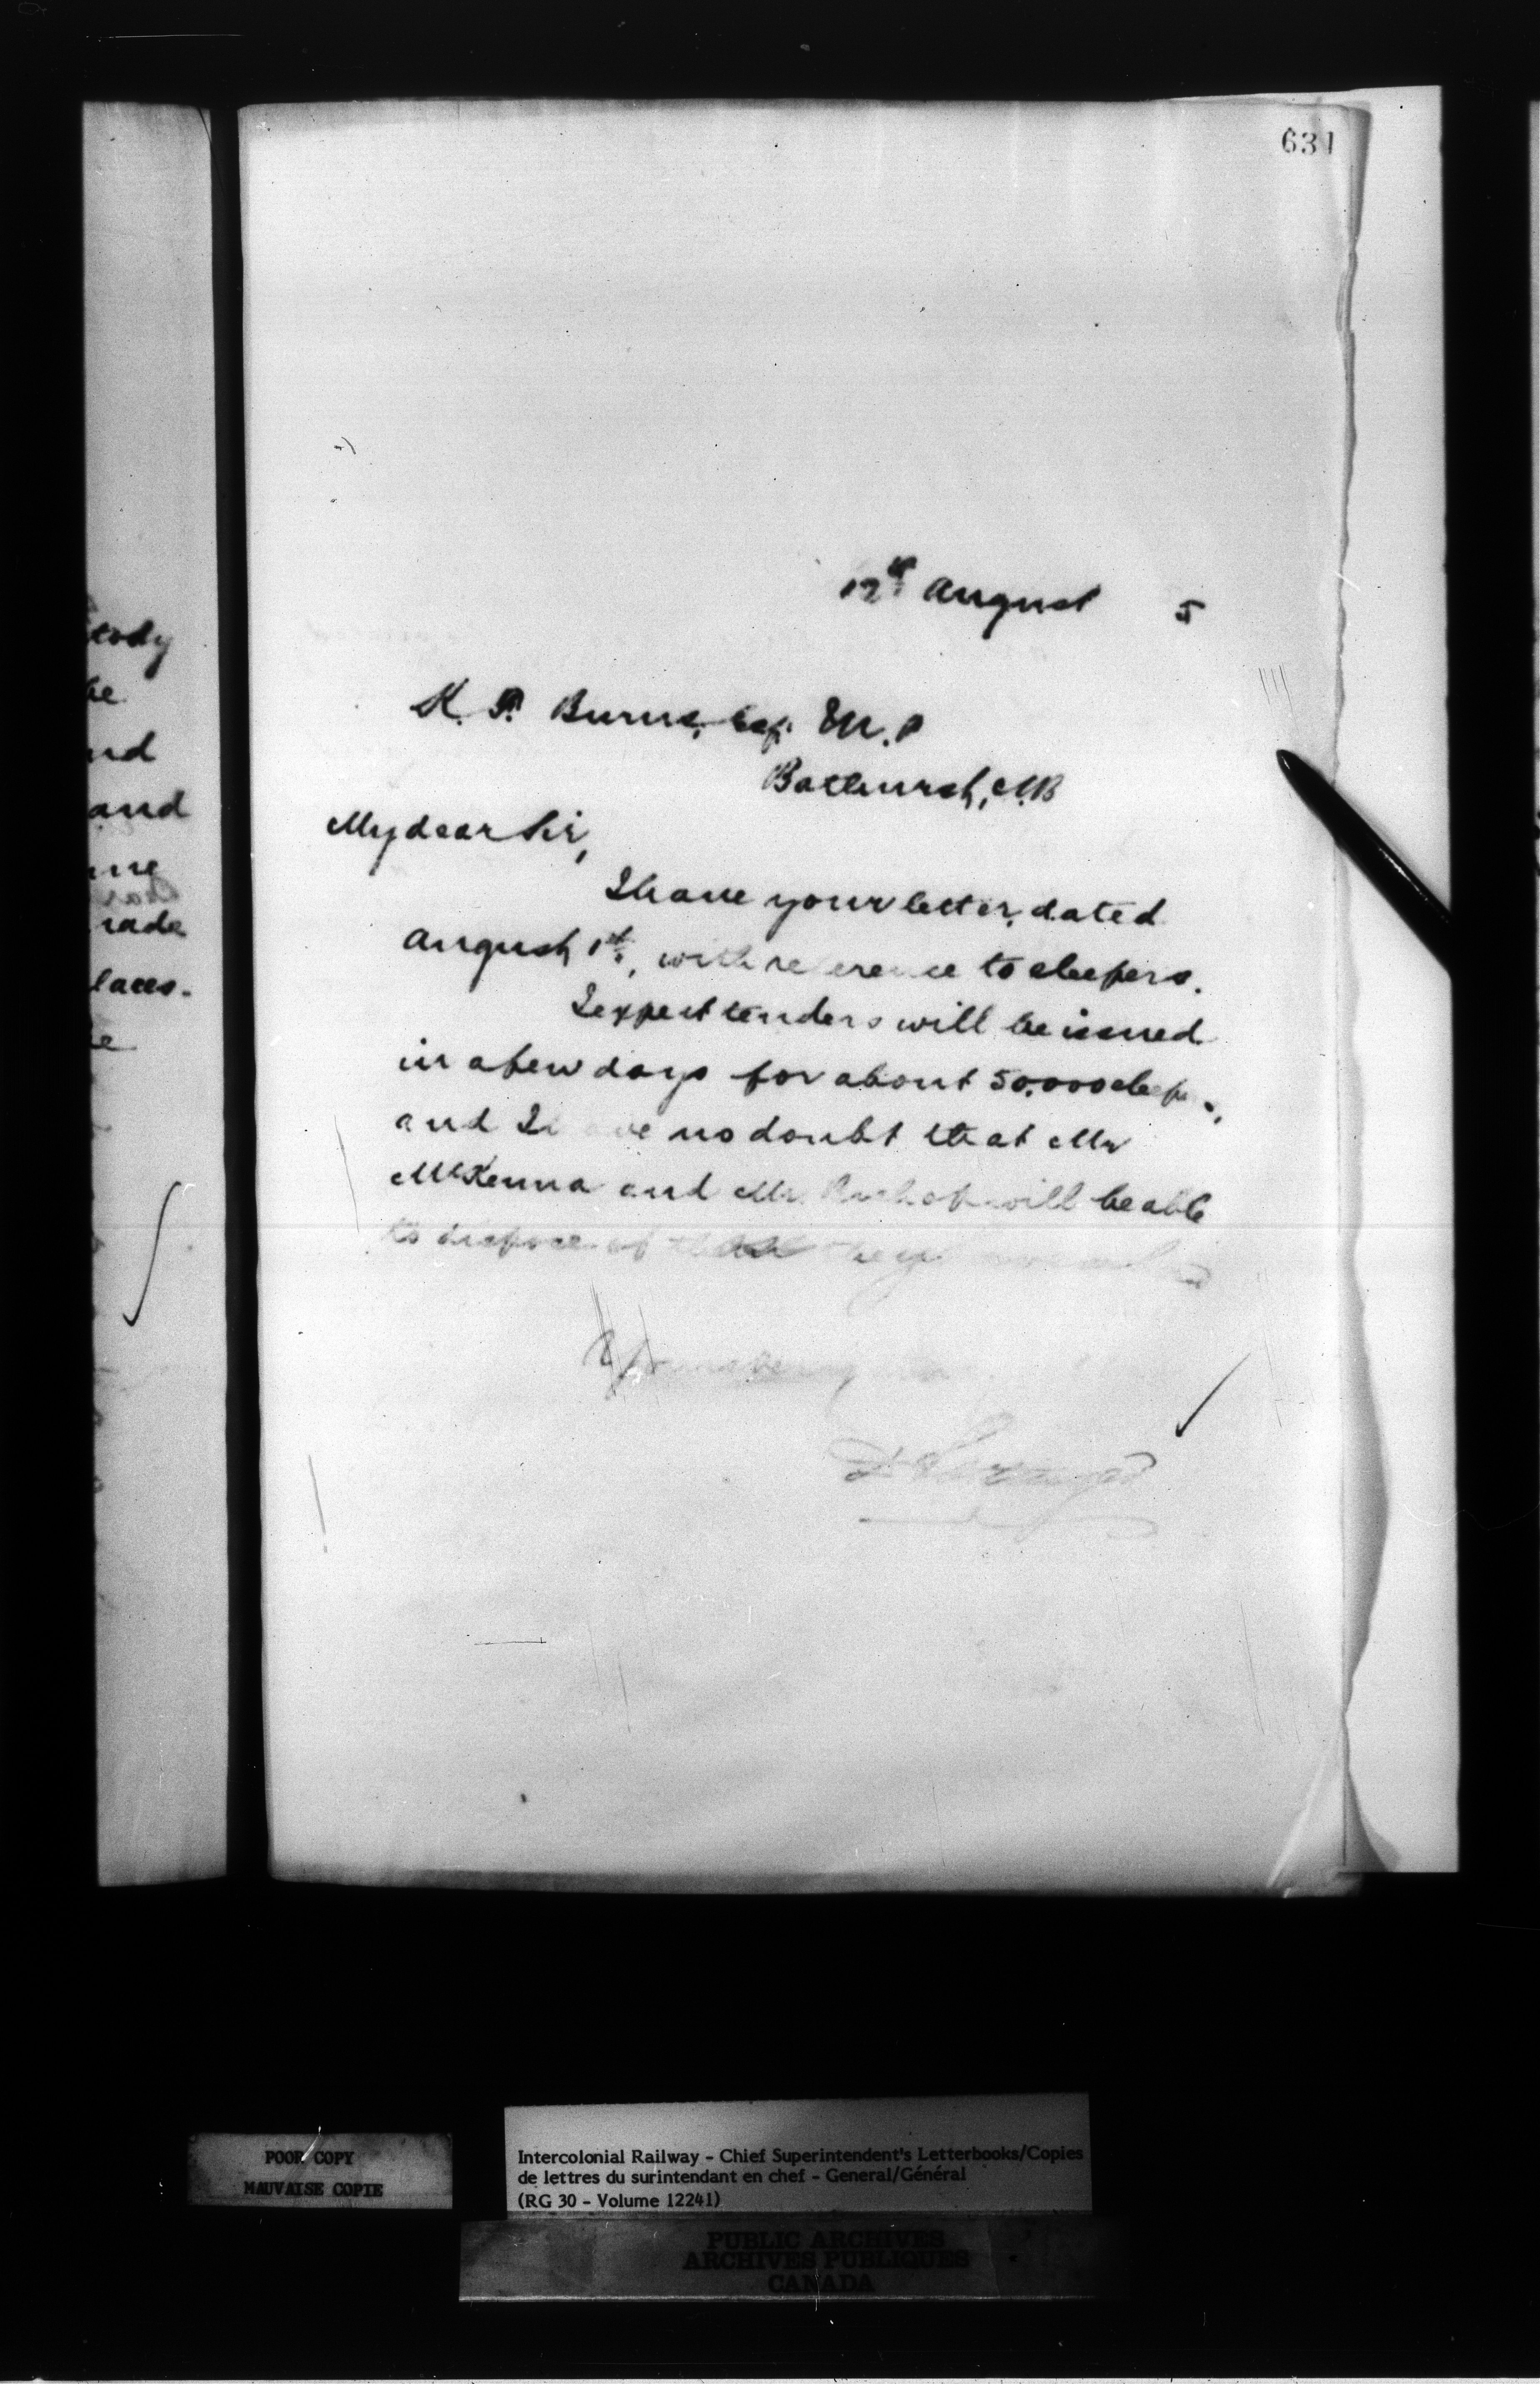 631
tody
be
nd
and
me
rade
laces.
12th August 5
K. F. Burns, Esq. M.P
Bathurst, N.B
My dear Sir,
I have your letter, dated
August 1st, with reference to sleepers.
I expect tenders will be issued
in a few days for about 50,000 sleepers,
and I have no doubt that Mr
McKenna and Mr. will be able
to dispose of they
Yours very
POOR COPY
MAUVAISE COPIE
Intercolonial Railway - Chief Superintendent's Letterbooks/Copies
de lettres du surintendant en chef - General/Général
(RG 30 - Volume 12241)
PUBLIC ARCHIVES
ARCHIVES PUBLIQUES
CANADA